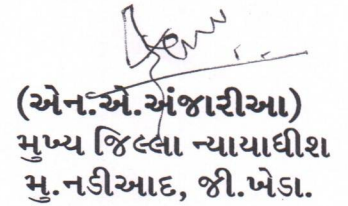 (એન.એ.અંજારીઆ)
મુખ્ય જિલ્લા ન્યાયાધીશ
મુ.નડીઆદ, જી.ખેડા.